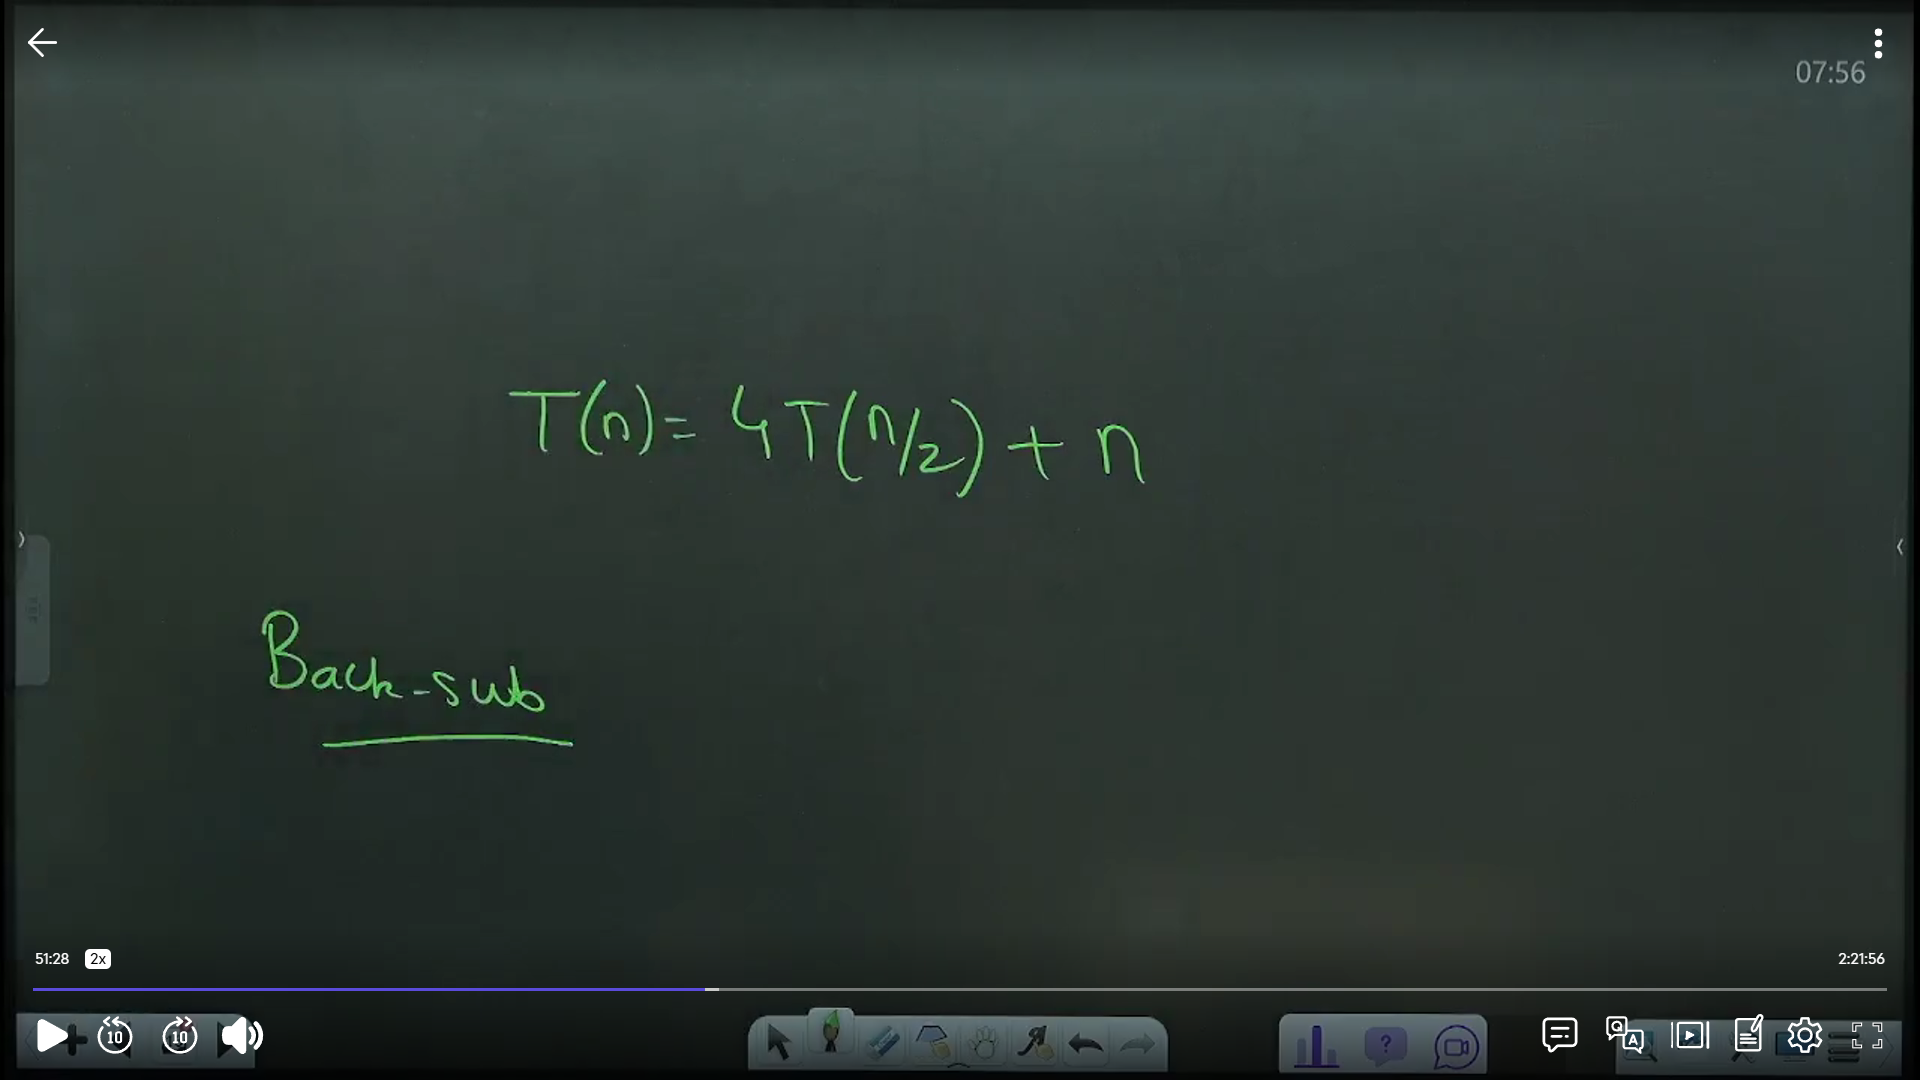 07:56
T(n) = 4T(n/2) + n
Back-sub
51:28 2x 2:21:56
10 10